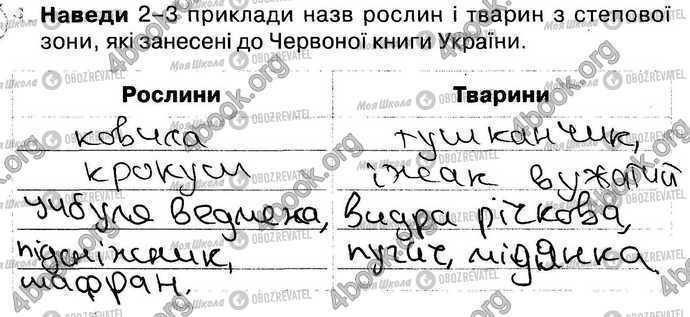 Наведи 2–3 приклади назв рослин і тварин з степової
зони, які занесені до Червоної книги України.
Рослини
Тварини
ковила
тушканчик,
крокуси
їжак вухатий
цибуля ведмежа,
видра річкова,
підсніжник,
пугич, мідянка
шафран.
4book.org
Моя Школа
OBOZREVATEL